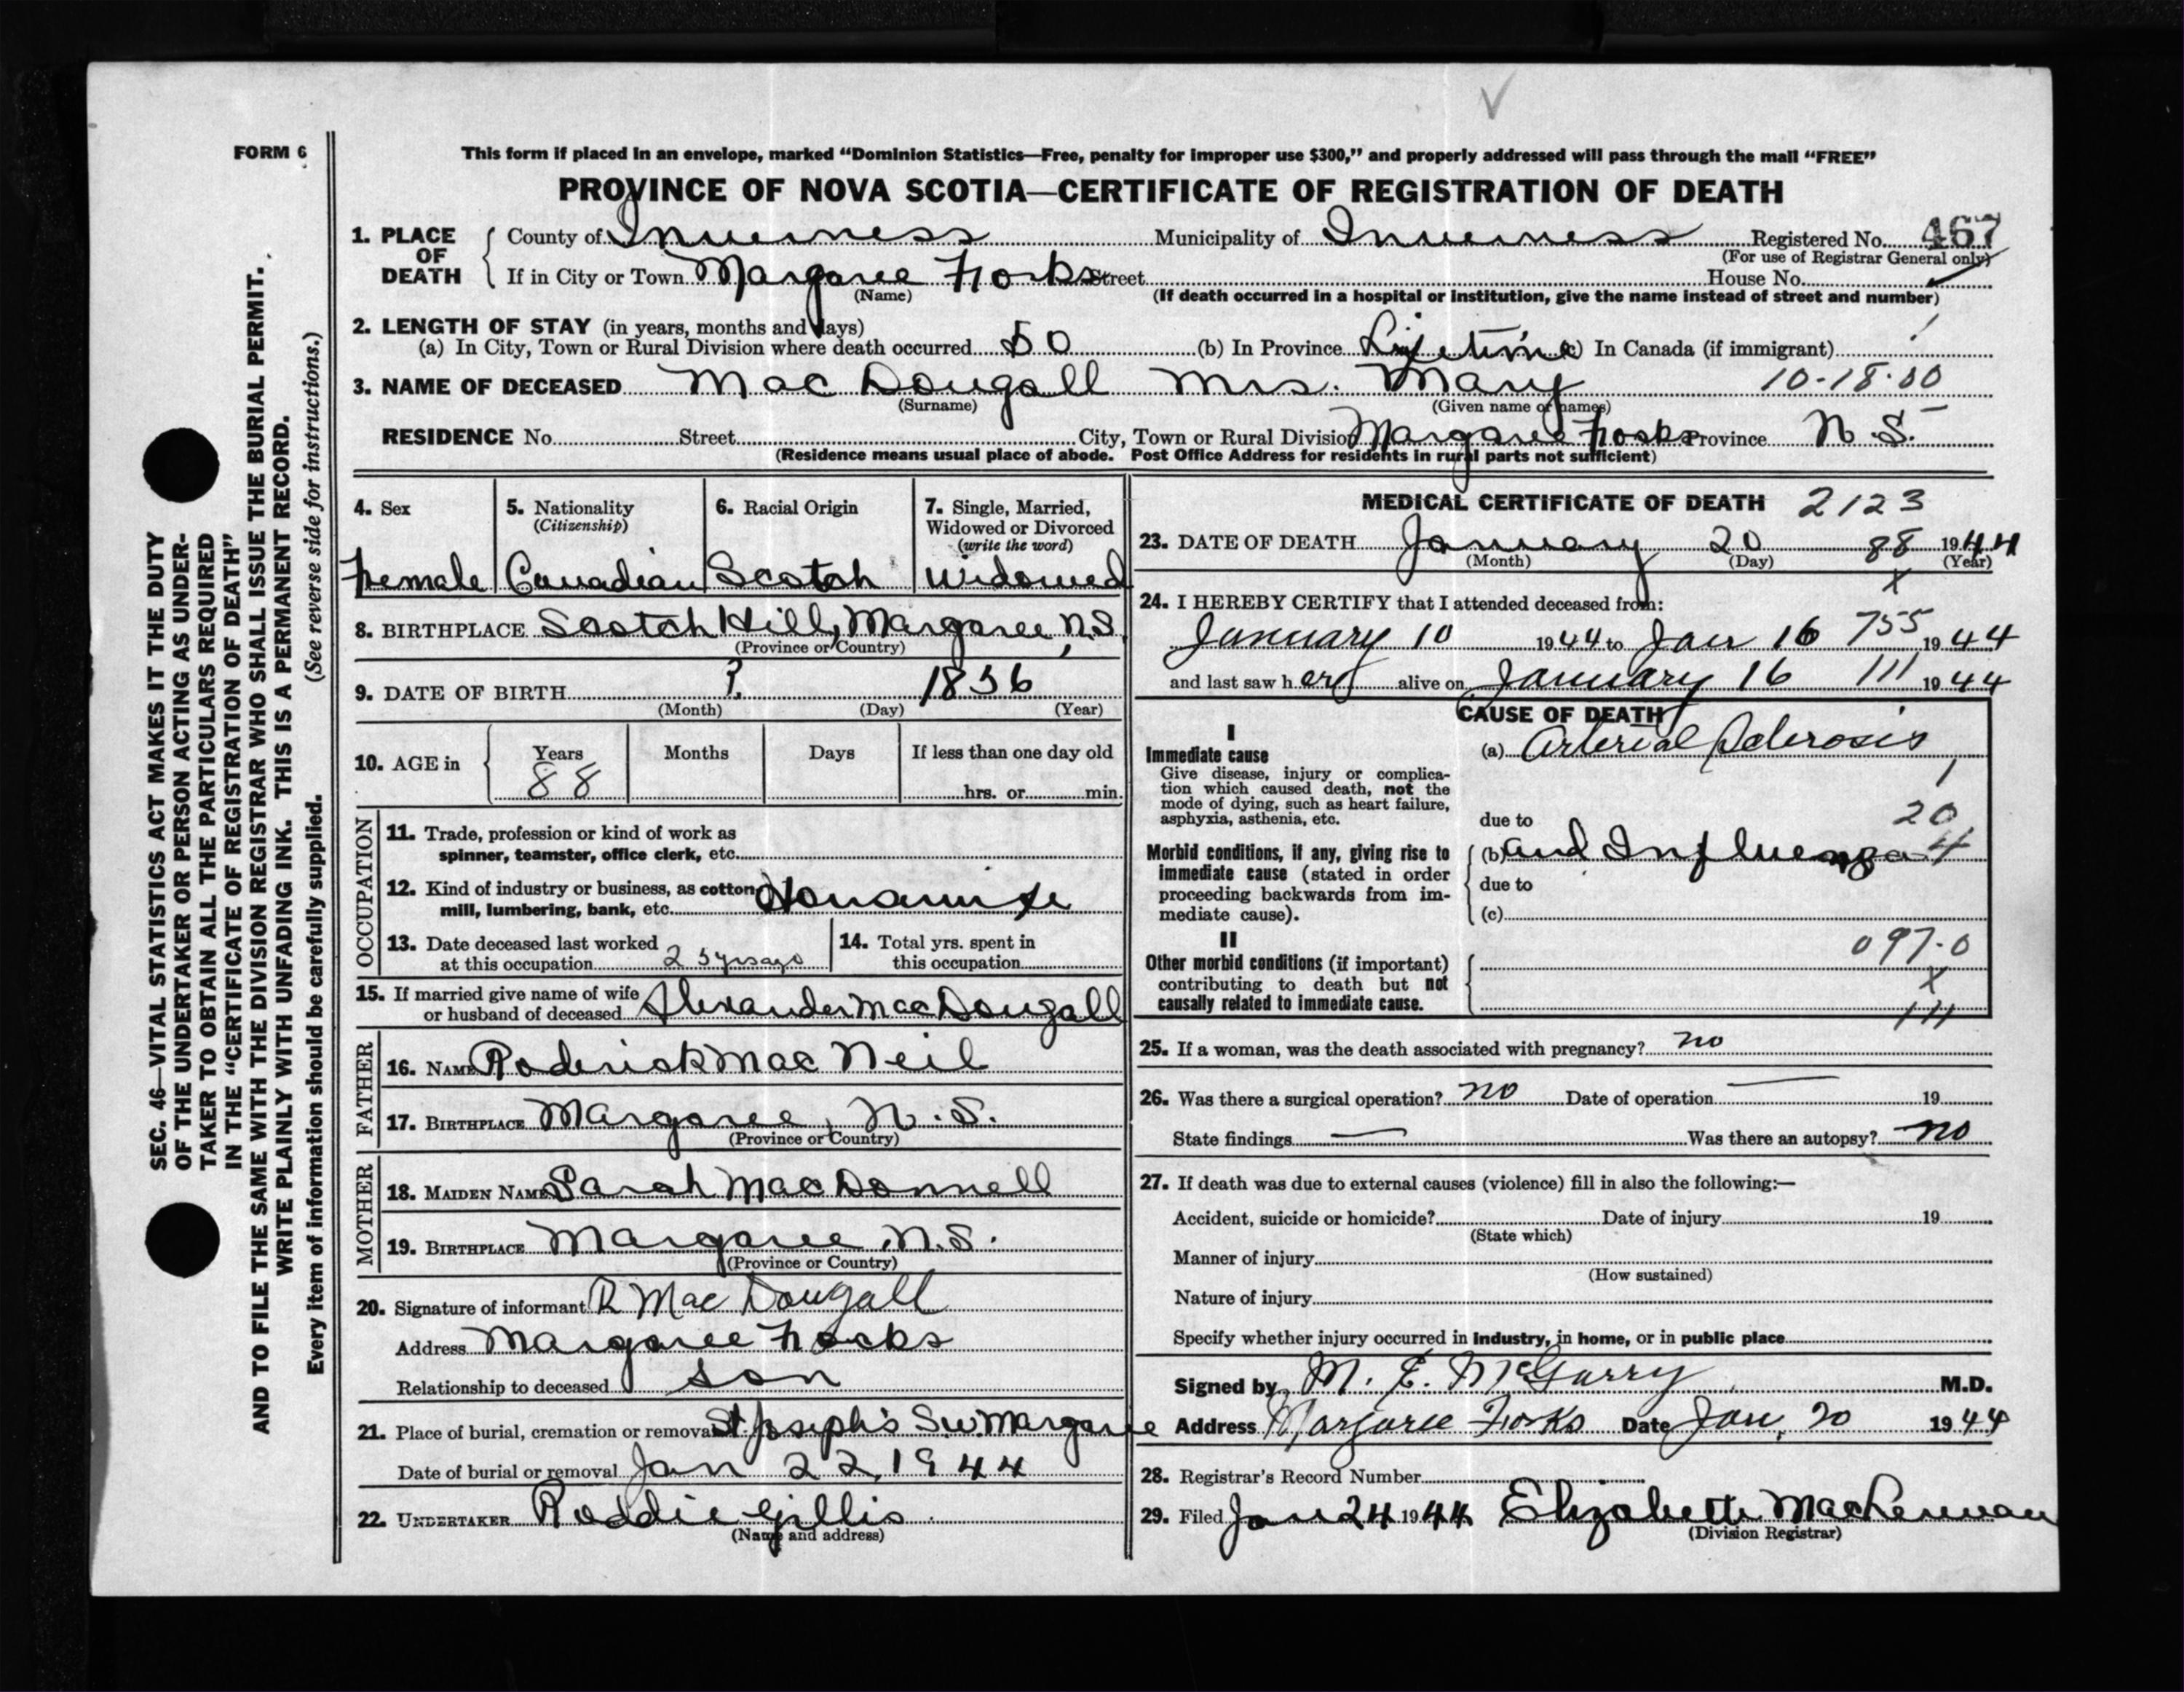 FORM 6
This form if placed in an envelope, marked “Dominion Statistics—Free, penalty for improper use $300,” and properly addressed will pass through the mail “FREE”
PROVINCE OF NOVA SCOTIA—CERTIFICATE OF REGISTRATION OF DEATH
1. PLACE OF DEATH County of Inverness Municipality of Inverness Registered No. 467
(For use of Registrar General only)
If in City or Town Margaree Forks Street House No.
(Name) (If death occurred in a hospital or institution, give the name instead of street and number)
2. LENGTH OF STAY (in years, months and days)
(a) In City, Town or Rural Division where death occurred 50 (b) In Province Lifetime (c) In Canada (if immigrant)
3. NAME OF DECEASED MacDougall Mrs. Mary 10-18-00
(Surname) (Given name or names)
RESIDENCE No. Street City, Town or Rural Division Margaree Forks Province N.S.
(Residence means usual place of abode. Post Office Address for residents in rural parts not sufficient)
4. Sex 5. Nationality 6. Racial Origin 7. Single, Married,
(Citizenship) Widowed or Divorced
(write the word)
Female Canadian Scotch Widowed
8. BIRTHPLACE Scotch Hill, Margaree, N.S.
(Province or Country)
9. DATE OF BIRTH ? 1856
(Month) (Day) (Year)
10. AGE in Years Months Days If less than one day old
88 hrs. or min.
OCCUPATION
11. Trade, profession or kind of work as
spinner, teamster, office clerk, etc.
12. Kind of industry or business, as cotton
mill, lumbering, bank, etc. Housewife
13. Date deceased last worked 14. Total yrs. spent in
at this occupation 25 yrs ago this occupation
15. If married give name of wife
or husband of deceased Alexander MacDougall
FATHER
16. NAME Roderick MacNeil
17. BIRTHPLACE Margaree, N.S.
(Province or Country)
MOTHER
18. MAIDEN NAME Sarah MacDonnell
19. BIRTHPLACE Margaree, N.S.
(Province or Country)
20. Signature of informant R MacDougall
Address Margaree Forks
Relationship to deceased son
21. Place of burial, cremation or removal St. Joseph's S.W. Margaree
Date of burial or removal Jan 22, 1944
22. UNDERTAKER Roddie Gillis
(Name and address)
MEDICAL CERTIFICATE OF DEATH 2123
23. DATE OF DEATH January 20 88 1944
(Month) (Day) (Year)
X
24. I HEREBY CERTIFY that I attended deceased from:
January 10 1944 to Jan 16 755 1944
and last saw her alive on January 16 111 1944
CAUSE OF DEATH
I
Immediate cause (a) Arterial Sclerosis
Give disease, injury or complica-
tion which caused death, not the
mode of dying, such as heart failure,
asphyxia, asthenia, etc. due to
1
20
4
Morbid conditions, if any, giving rise to (b) and Influenza
immediate cause (stated in order due to
proceeding backwards from im-
mediate cause). (c)
II 097.0
Other morbid conditions (if important)
contributing to death but not X
causally related to immediate cause. 111
25. If a woman, was the death associated with pregnancy? no
26. Was there a surgical operation? no Date of operation — 19
State findings — Was there an autopsy? no
27. If death was due to external causes (violence) fill in also the following:—
Accident, suicide or homicide? Date of injury 19
(State which)
Manner of injury
(How sustained)
Nature of injury
Specify whether injury occurred in industry, in home, or in public place
Signed by M. E. McGarry M.D.
Address Margaree Forks Date Jan. 20 1944
28. Registrar's Record Number
29. Filed Jan 24 1944 Elizabeth MacLennan
(Division Registrar)
SEC. 46—VITAL STATISTICS ACT MAKES IT THE DUTY
OF THE UNDERTAKER OR PERSON ACTING AS UNDER-
TAKER TO OBTAIN ALL THE PARTICULARS REQUIRED
IN THE “CERTIFICATE OF REGISTRATION OF DEATH”
AND TO FILE THE SAME WITH THE DIVISION REGISTRAR WHO SHALL ISSUE THE BURIAL PERMIT.
WRITE PLAINLY WITH UNFADING INK. THIS IS A PERMANENT RECORD.
Every item of information should be carefully supplied. (See reverse side for instructions.)